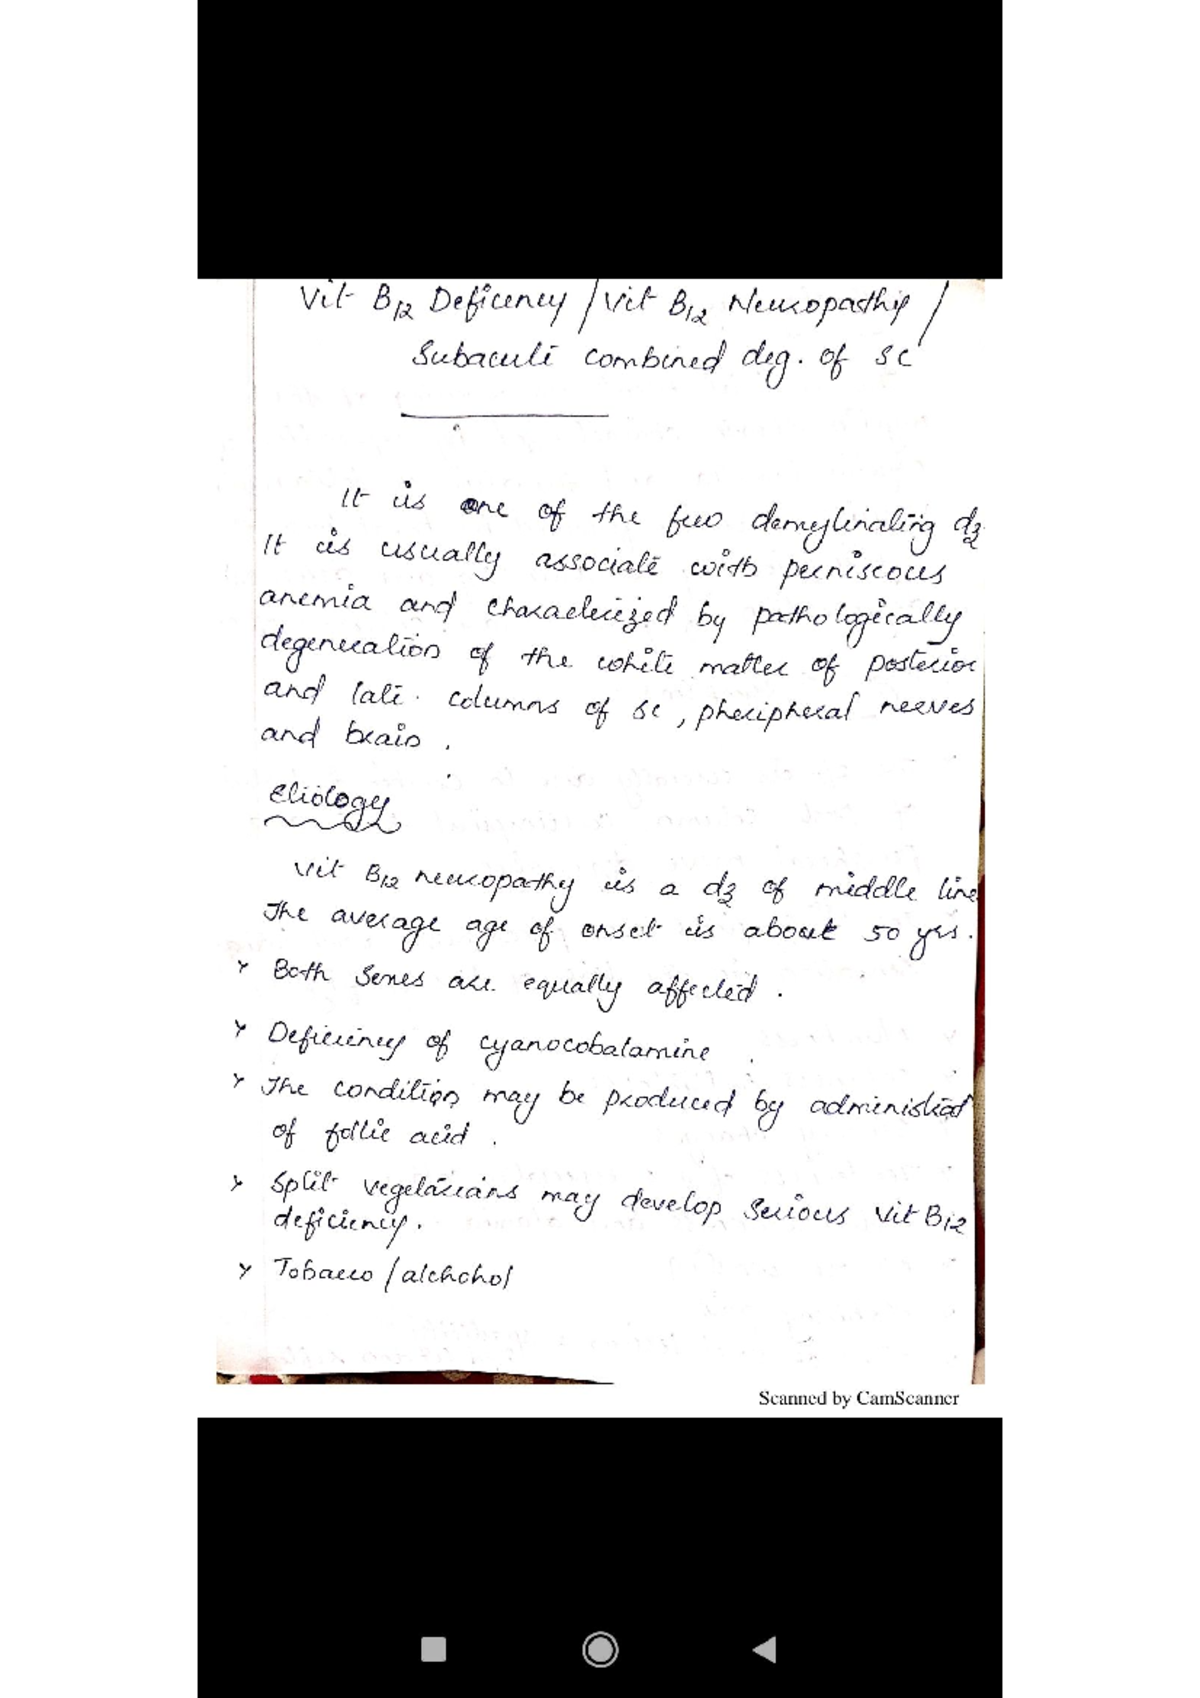 Vit B12 Deficency / Vit B12 Neuropathy /
Subacute combined deg. of SC
It is one of the few demeylinating dz
It is usually associate with perniscous
anemia and characterized by pathologically
degeneration of the white matter of posterior
and late. columns of sc, pheripheral nerves
and brain.
etiology
Vit B12 neuropathy is a dz of middle line
The average age of onset is about 50 yrs.
Both sexes are equally affected.
Deficiency of cyanocobalamine.
The condition may be produced by administrat
of follic acid.
Split vegetarians may develop serious Vit B12
deficiency.
Tobacco / alchohol
Scanned by CamScanner